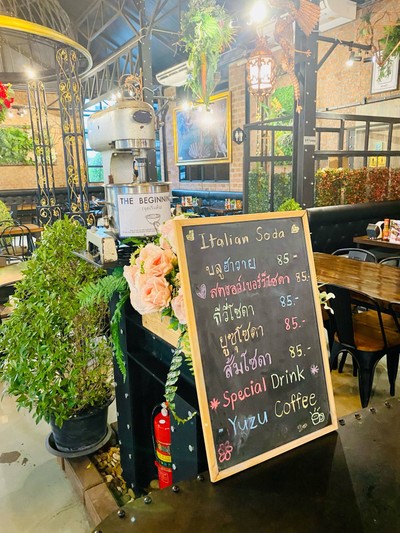 THE BEGINNING
Italian Soda
บลูฮาวาย 85.-
สตรอว์เบอร์รี่โซดา 85.-
กีวี่โซดา 85.-
ยูซุโซดา 85.-
ส้มโซดา 85.-
Special Drink
- Yuzu Coffee